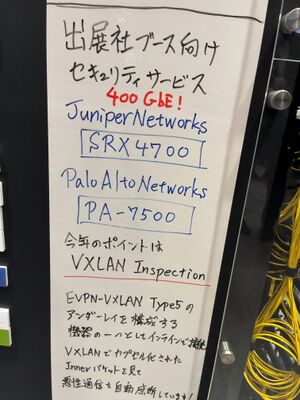 出展社ブース向け
セキュリティサービス
400GbE!
Juniper Networks
SRX4700
Palo Alto Networks
PA-7500
今年のポイントは
VXLAN Inspection
EVPN-VXLAN Type5の
アンダーレイを構成する
機器の一つとしてインラインで接続
VXLANでカプセル化された
Innerパケットを見て
悪性通信を自動遮断しています!